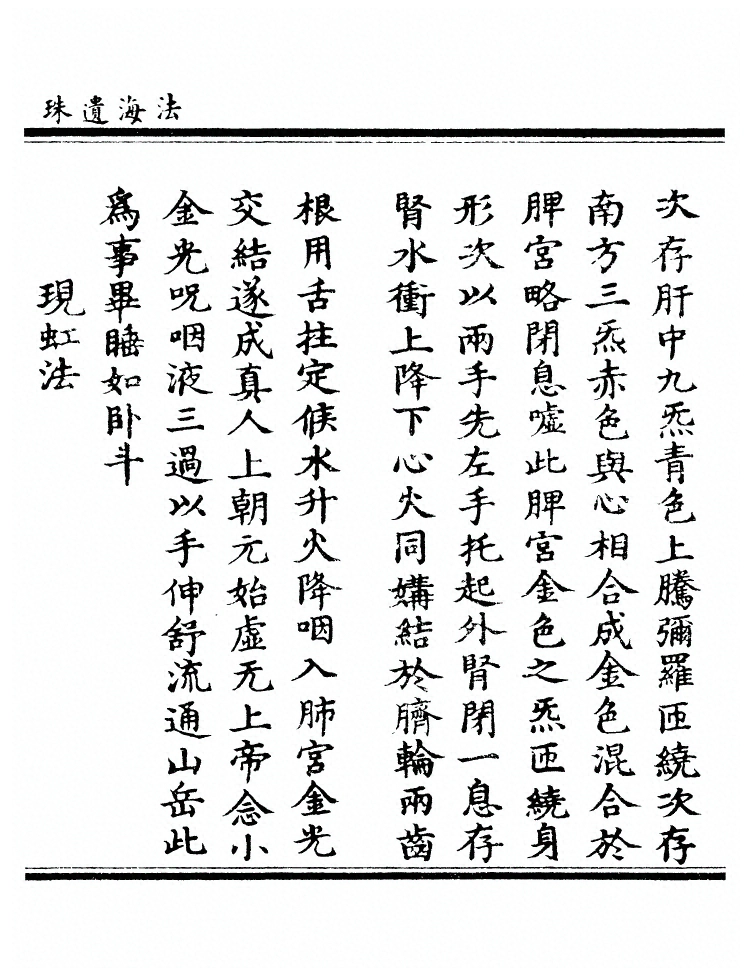 法海遺珠
次存肝中九炁青色上騰彌羅匝繞次存
南方三炁赤色與心相合成金色混合於
脾宮略閉息噓此脾宮金色之炁匝繞身
形次以兩手先左手托起外腎閉一息存
腎水衝上降下心火同媾結於臍輪兩齒
根用舌拄定候水升火降咽入肺宮金光
交結遂成真人上朝元始虛无上帝念小
金光呪咽液三過以手伸舒流通山岳此
為事畢睡如卧斗
現虹法